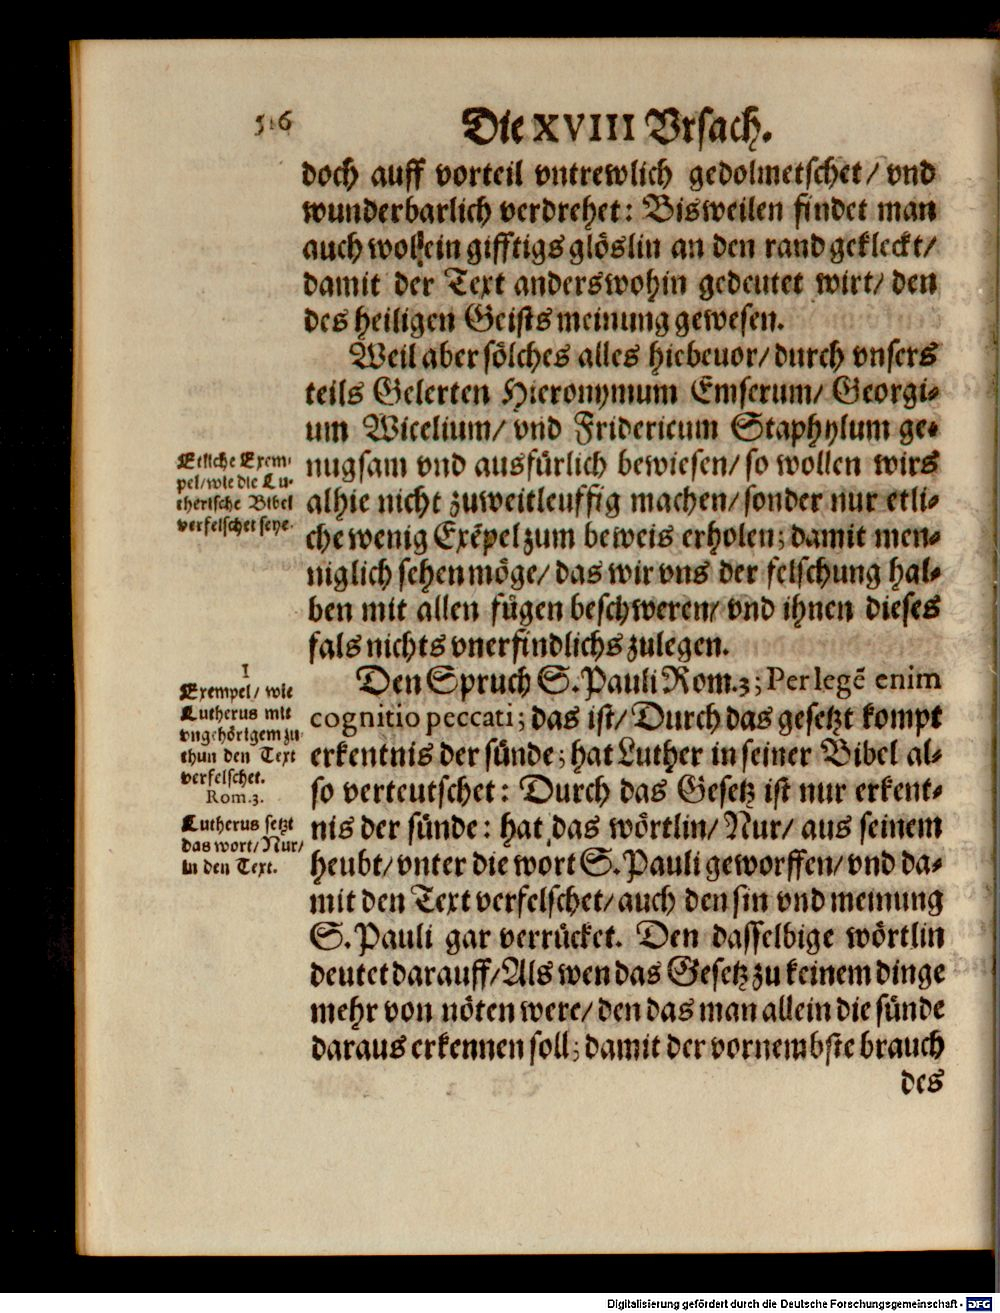 516
Die XVIII Vrsach.
doch auff vorteil vntrewlich gedolmetschet/ vnd
wunderbarlich verdrehet: Bisweilen findet man
auch wol ein gifftigs glöslin an den rand gekleckt/
damit der Text anderswohin gedeutet wirt/ den
des heiligen Geists meinung gewesen.
Weil aber sölches alles hiebeuor/ durch vnsers
teils Gelerten Hieronymum Emserum/ Georgi-
um Wicelium/ vnd Fridericum Staphylum ge-
nugsam vnd ausfürlich bewiesen/ so wollen wirs
alhie nicht zuweitleuffig machen/ sonder nur etli-
che wenig Exẽpel zum beweis erholen; damit men-
niglich sehen möge/ das wir vns der felschung hal-
ben mit allen fůgen beschweren/ vnd ihnen dieses
fals nichts vnerfindlichs zulegen.
Den Spruch S. Pauli Rom. 3; Per legẽ enim
cognitio peccati; das ist/ Durch das gesetzt kompt
erkentnis der sůnde; hat Luther in seiner Bibel al-
so verteutschet: Durch das Gesetz ist nur erkent-
nis der sůnde: hat das wörtlin/ Nur/ aus seinem
heubt/ vnter die wort S. Pauli geworffen/ vnd da-
mit den Text verfelschet/ auch den sin vnd meinung
S. Pauli gar verrůcket. Den dasselbige wörtlin
deutet darauff/ Als wen das Gesetz zu keinem dinge
mehr von nöten were/ den das man allein die sůnde
daraus erkennen soll; damit der vornembste brauch
des
Etliche Exem-
pel/ wie die Lu-
therische Bibel
verfelschet seye.
1
Exempel/ wie
Lutherus mit
vngehörigem zu
thun den Text
verfelschet.
Rom. 3.
Lutherus setzt
das wort/ Nur/
in den Text.
Digitalisierung gefördert durch die Deutsche Forschungsgemeinschaft - DFG